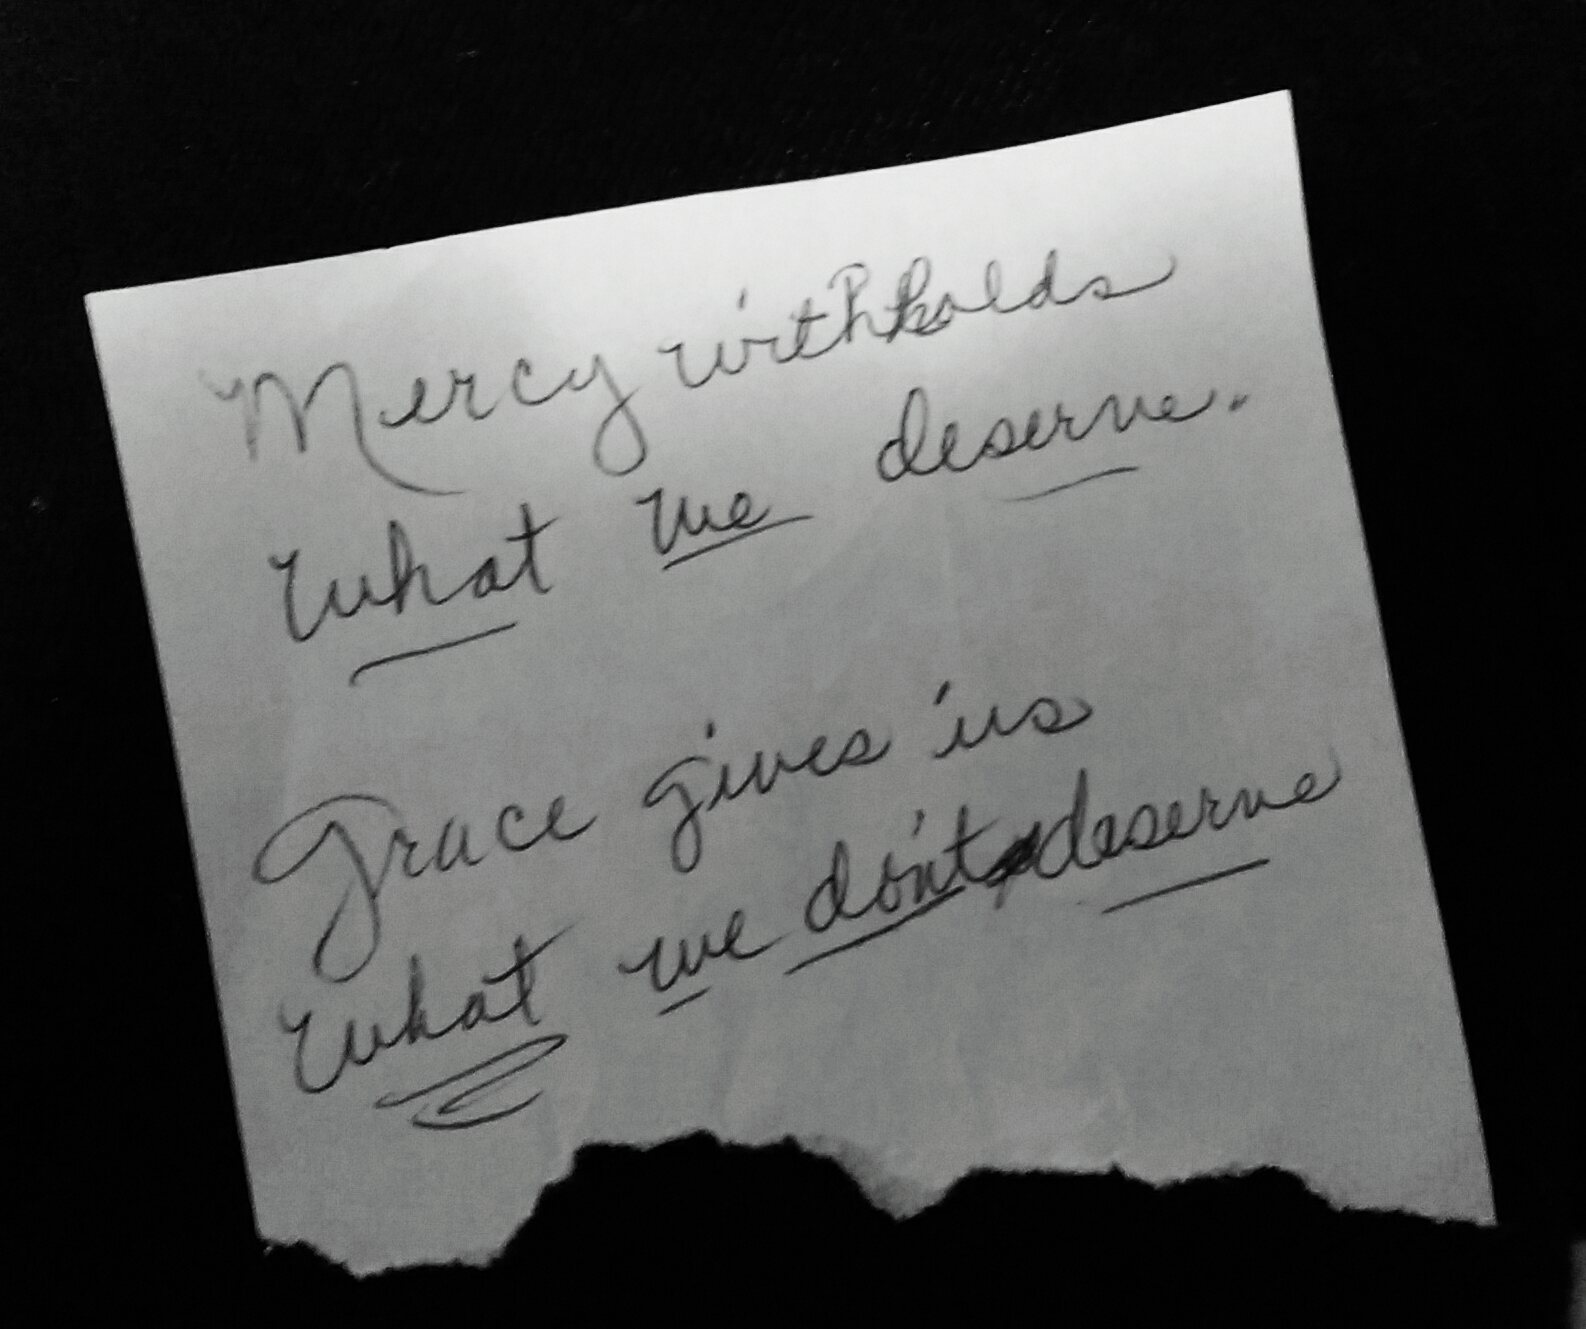 Mercy withholds
what we deserve.
Grace gives us
what we don't deserve